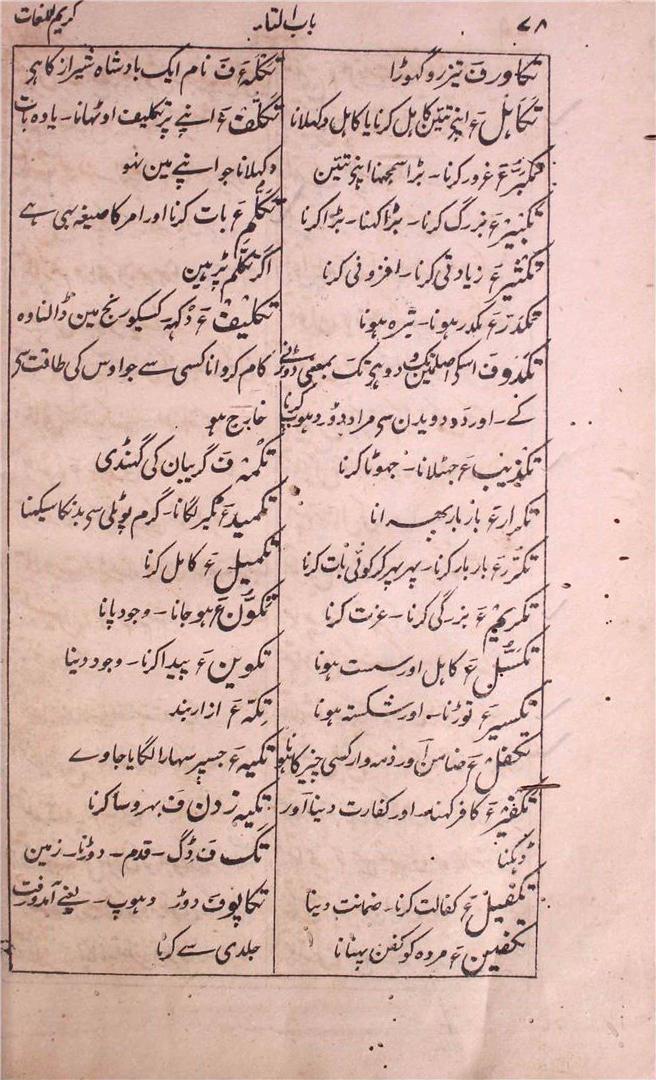 ۷۸
باب التاء
کریم اللغات
تکاور ف تیز رو گہوڑا
تکاہل ع اپنے تئین کاہل کرنا یا کاہل دکہلانا
تکبّر ع غرور کرنا۔ بڑا سمجہنا اپنے تئین
تکبیر ع بزرگ کرنا۔ بڑا کہنا۔ بڑا کرنا
تکثیر ع زیادتی کرنا۔ افزونی کرنا
تکدّر ع مکدر ہونا۔ تیرہ ہونا
تکدو ف اسکی اصل تک دو ہی تک بمعنی دوڑنے
کے۔ اور دو دویدن سی مراد دوڑ دہوپ کرنا
تکذیب ع جہٹلانا۔ جہوٹا کرنا
تکرار ع بار بار پہرانا
تکرّر ع بار بار کرنا۔ پہر پہر کر کوئی بات کرنا
تکریم ع بزرگی کرنا۔ عزت کرنا
تکسّل ع کاہل اور سست ہونا
تکسیر ع توڑنا۔ اور شکستہ ہونا
تکفّل ع ضامن اور ذمہ وار کسی چیز کا ہونا
تکفیر ع کافر کہنا۔ اور کفارت دینا اور
ڈہکنا
تکفیل ع کفالت کرنا۔ ضمانت دینا
تکفین ع مردہ کو کفن پہنانا
تکلہ ف نام ایک بادشاہ شیراز کا ہی
تکلّف ع اپنے پر تکلیف اوٹہانا۔ یا وہ بات
دکہلانا جو اپنے مین نہو
تکلّم ع بات کرنا اور امر کا صیغہ بہی ہے
اگر تکلّم پڑہین
تکلیف ع دکہہ کسیکو رنج مین ڈالنا وہ
کام کروانا کسی سے جو اوس کی طاقت سی
خارج ہو
تکمہ ف گریبان کی گہنڈی
تکمید ع ٹکیر لگانا۔ گرم پوٹلی سی بدنکا سیکہنا
تکمیل ع کامل کرنا
تکوّن ع ہو جانا۔ وجود پانا
تکوین ع پیدا کرنا۔ وجود دینا
تکّہ ع ازاربند
تکیہ ع جسپر سہارا لگایا جاوے
تکیہ زدن ف بہروسا کرنا
تگ ف ڈگ۔ قدم۔ دوڑنا۔ زمین
تکاپو ف دوڑ دہوپ۔ یعنے آمدورفت
جلدی سے کرنا